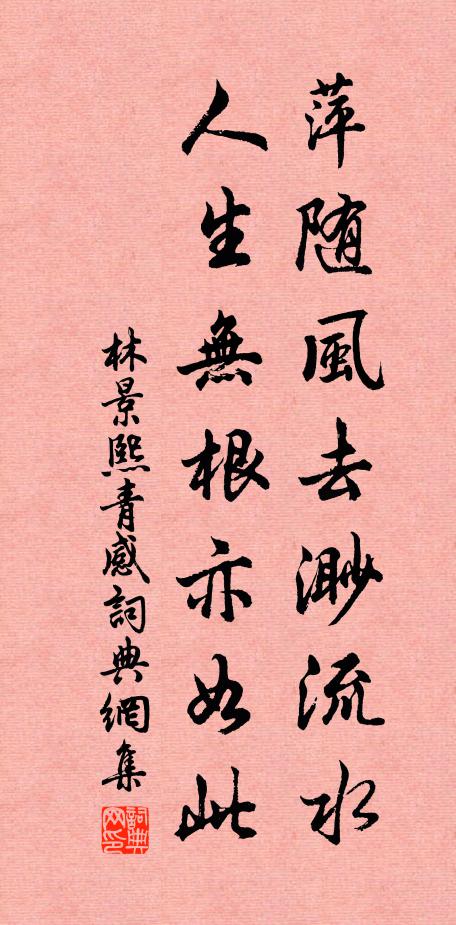 萍随風去渺流水
人生無根亦如此
林景熙青感詞典網集
詞典
网印